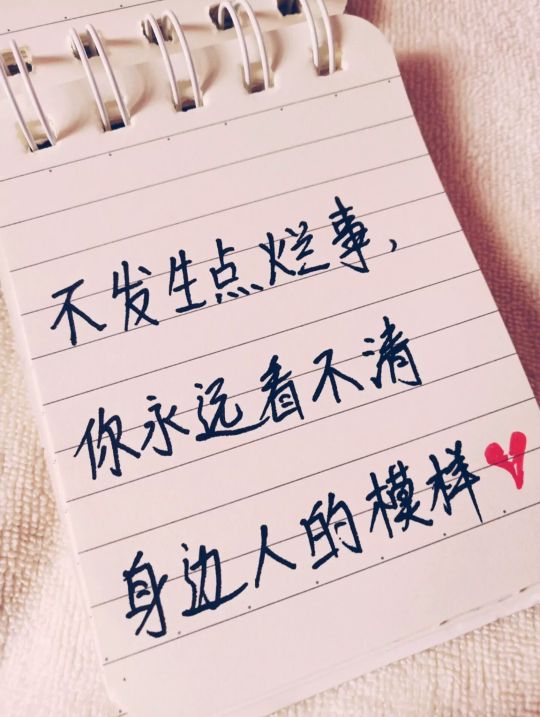 不发生点烂事，
你永远看不清
身边人的模样